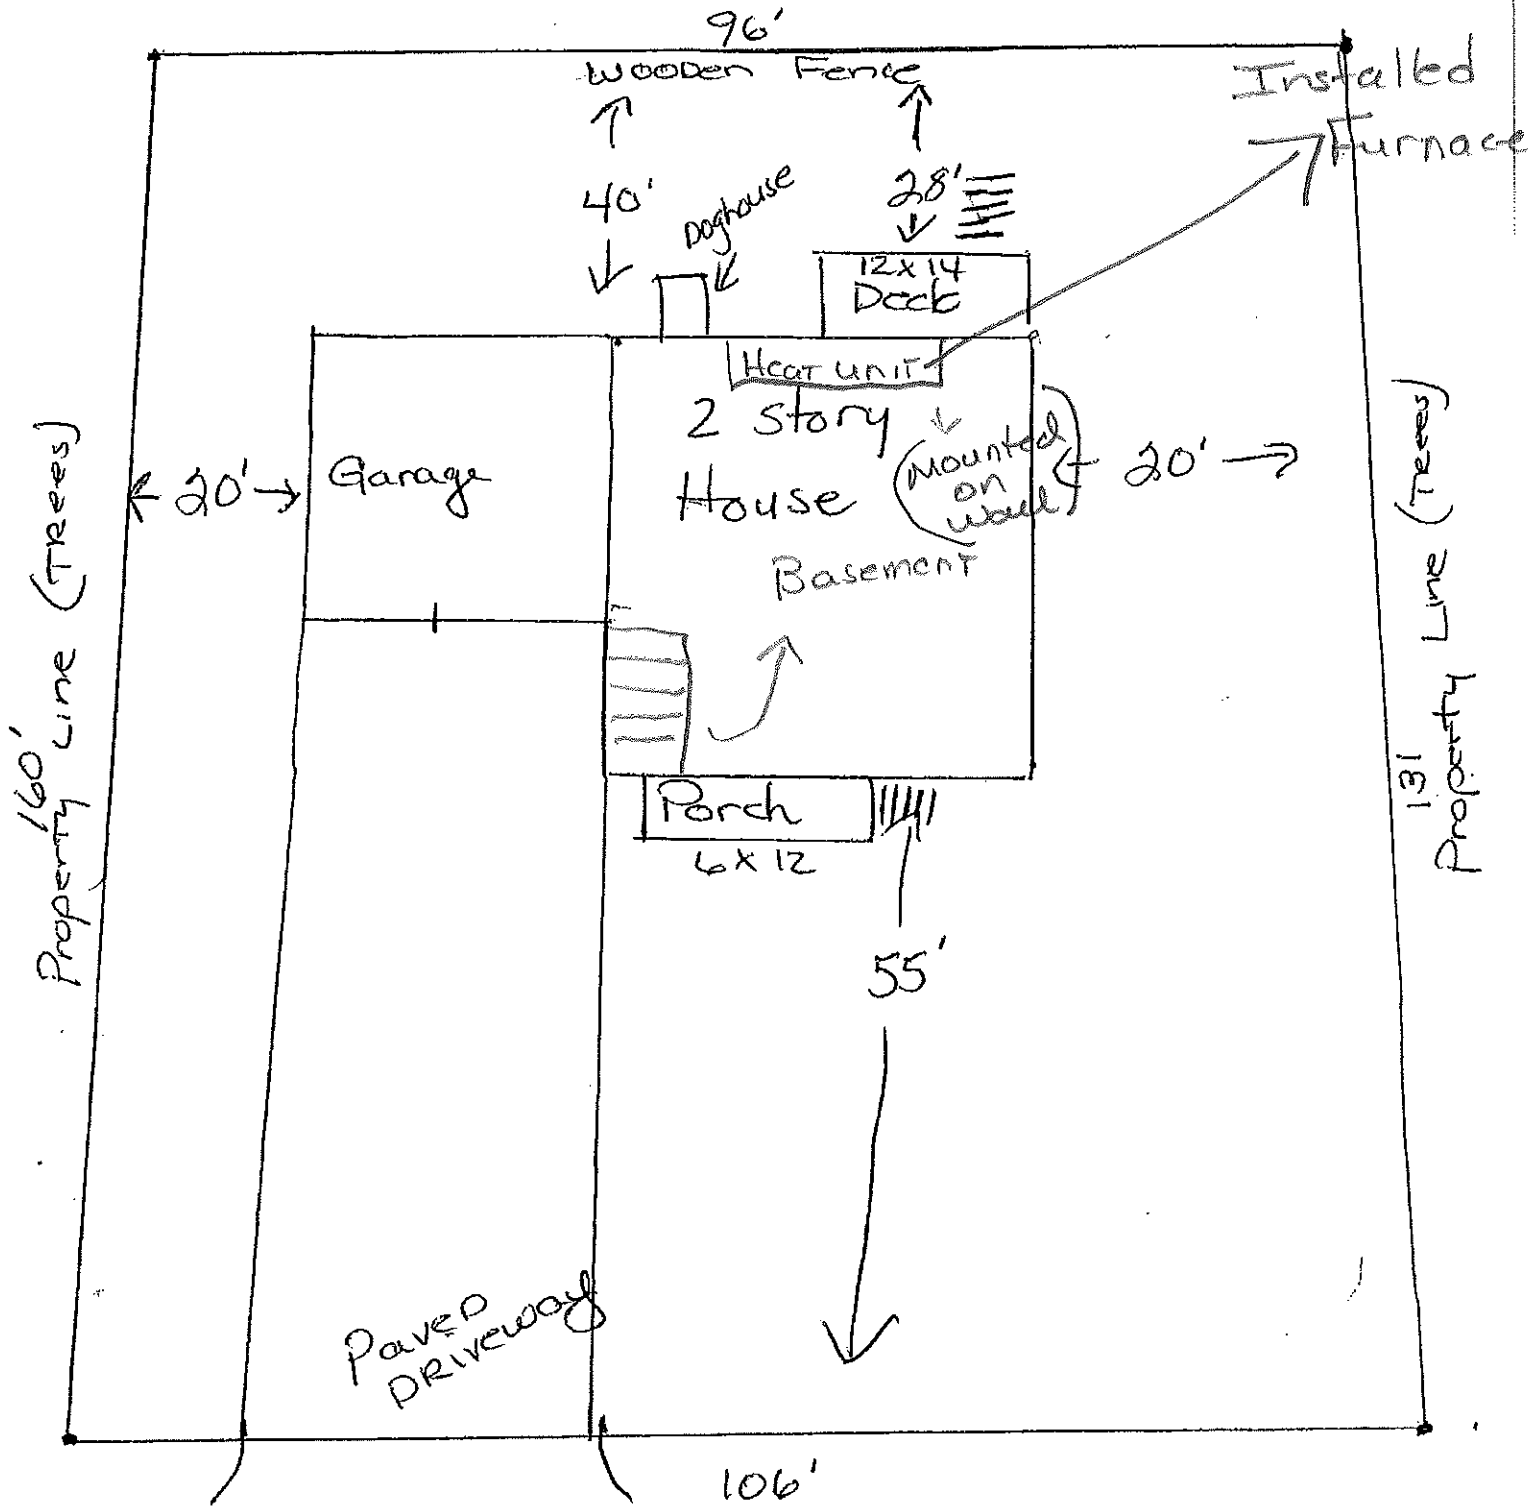 96'
Wooden Fence
Installed
Furnace
40'
Doghouse
28'
12 x 14
Deck
Heat unit
2 Story
House
(Mounted
on
wall)
Garage
20'
20'
Basement
Property Line (Trees)
160'
Property Line (Trees)
131
Porch
6 x 12
55'
Paved
Driveway
106'